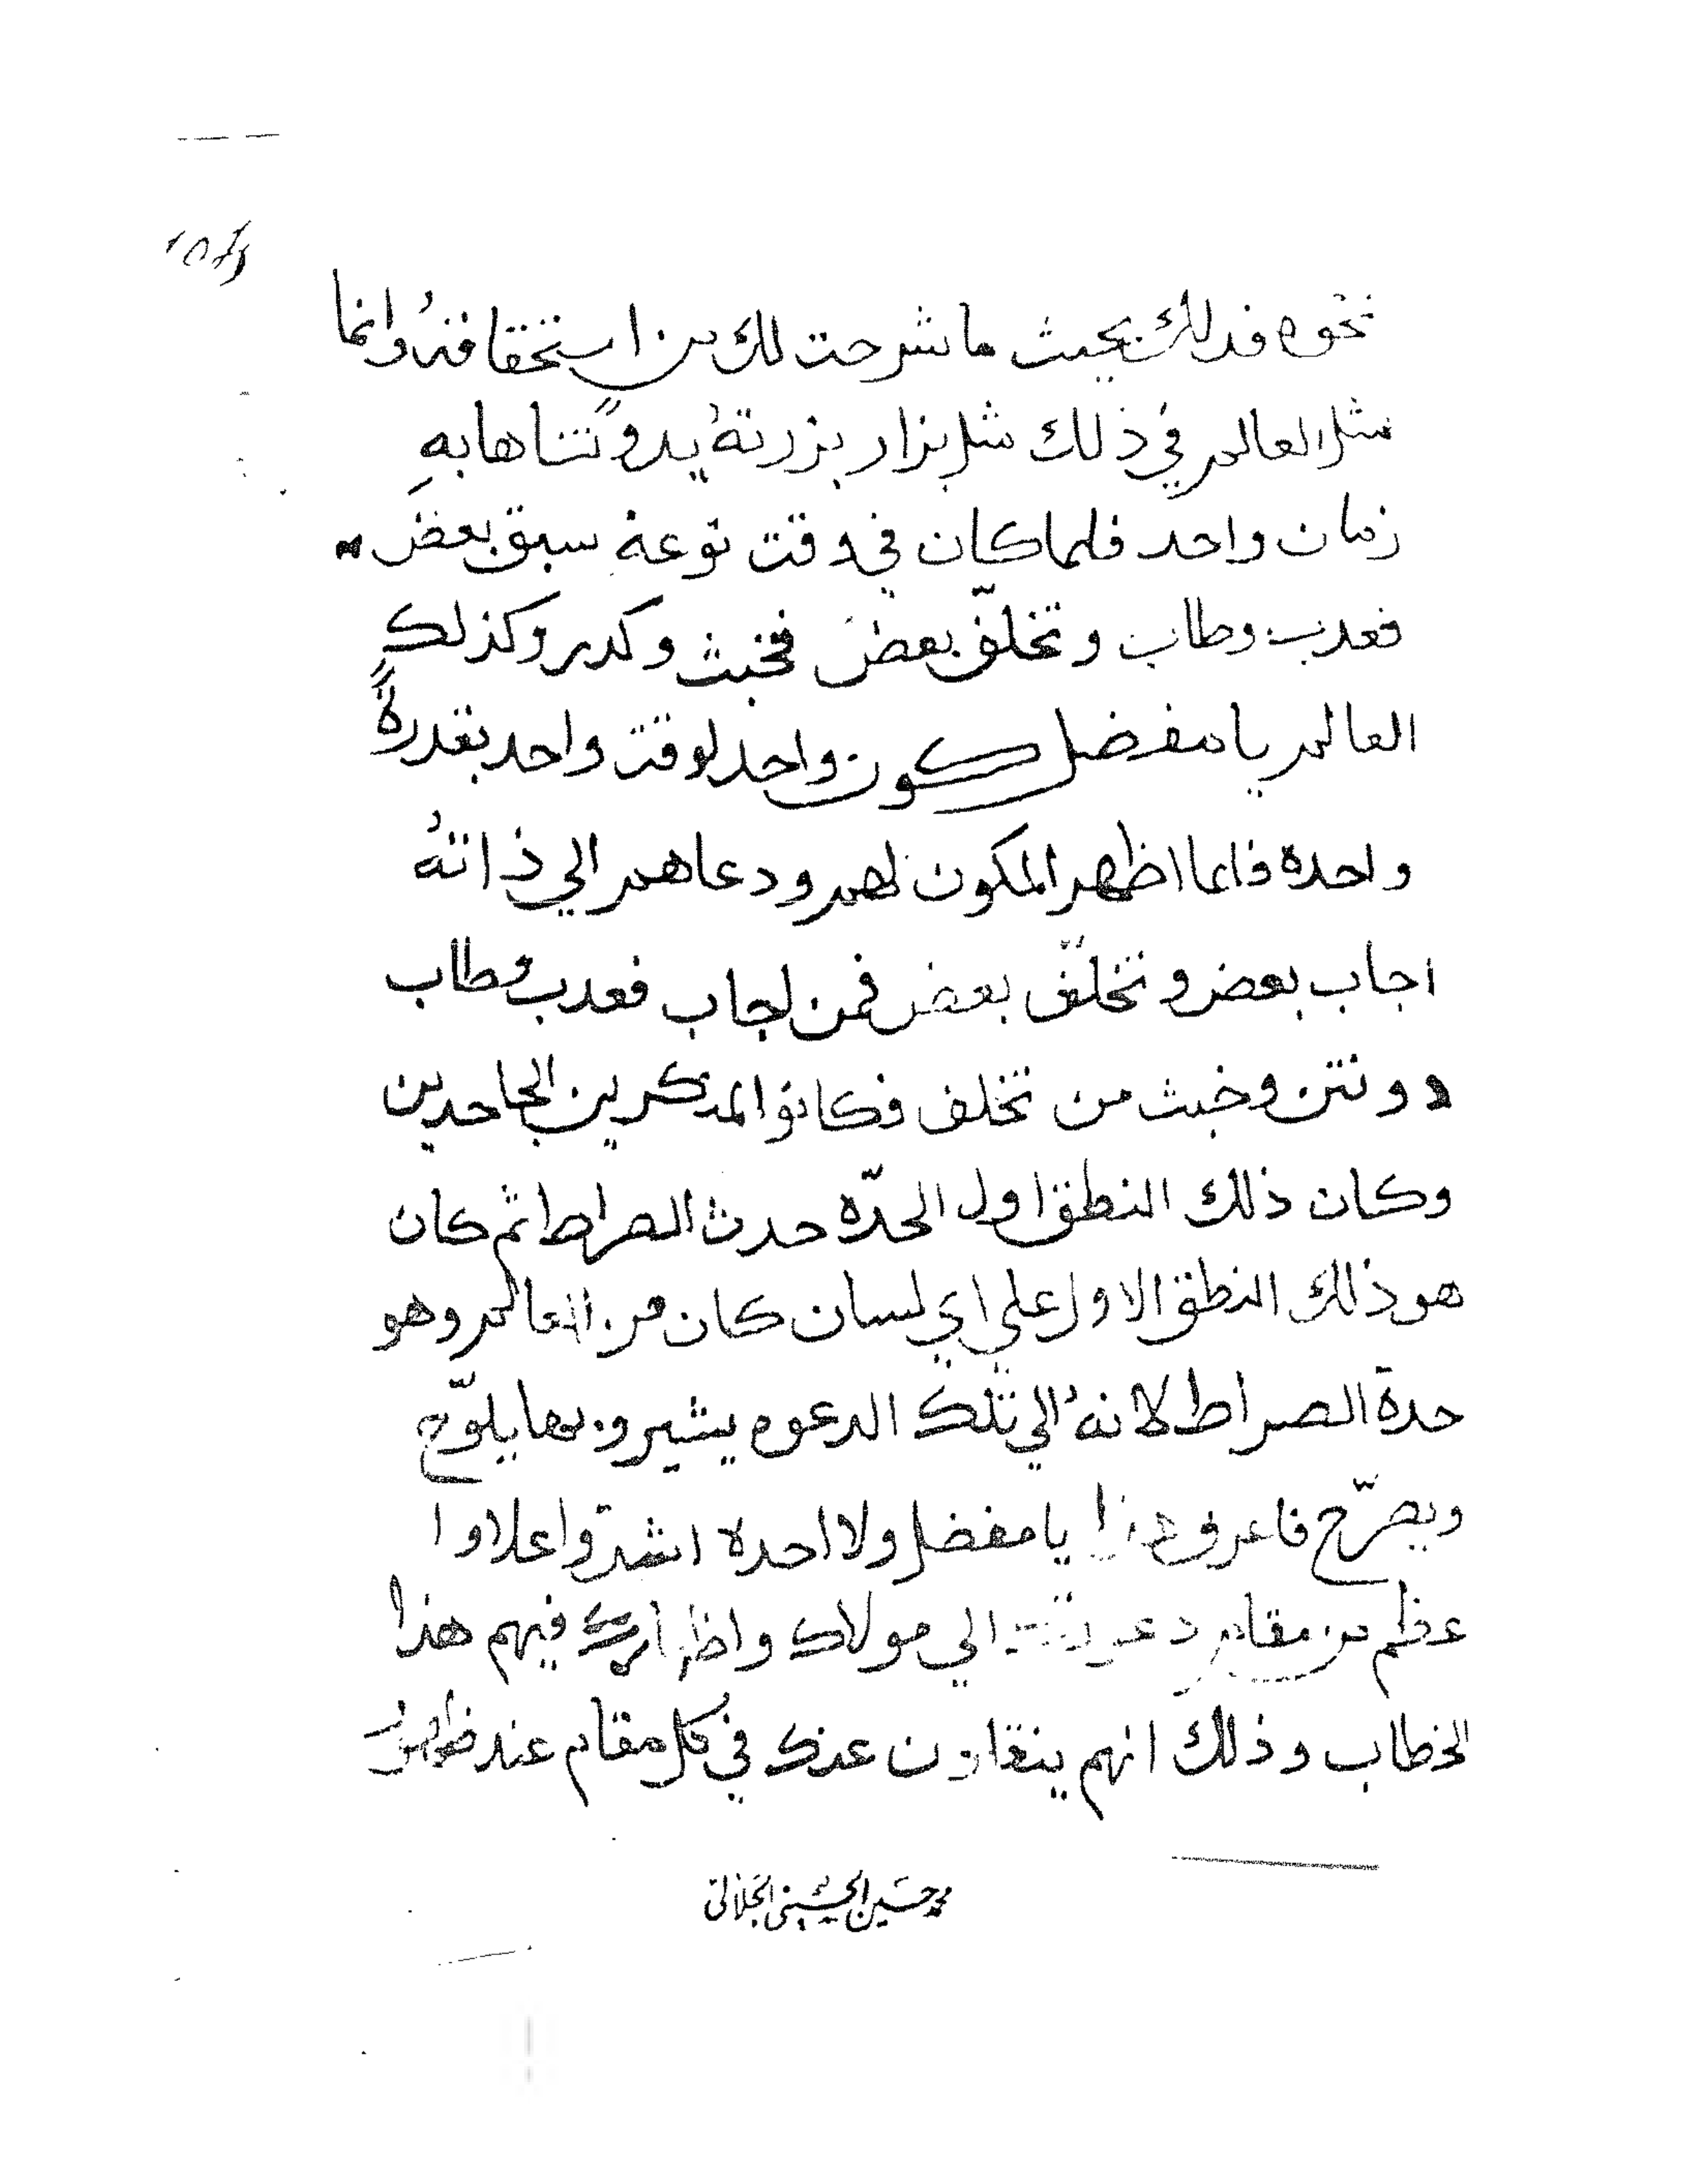 نحوه فدلك بحيث ما شرحت لك من استحقاقه وانما
مثل العالم في ذلك مثل بزار بزرته يدو تتناهابه
زمان واحد فلما كان في وقت نوعه سبق بعض
فعدب وطاب وتخلّف بعض فخبث وكدر وكذلك
العالم يا مفضل كون واحد لوقت واحد بقدرة
واحده فانما اظهر المكون لهم ودعاهم الي ذاته
اجاب بعض وتخلّف بعض فمن اجاب فعدب وطاب
ونتن وخبث من تخلف فكانو المنكرين الجاحدين
وكان ذلك النطق اول الحدّه حدث الصراط ثم كان
هو ذلك النطق الاول علي اي لسان كان من العالم وهو
حدة الصراط لانه الي تلك الدعوه يشير وبها يلوّح
ويصرّح فاعرف هذا يا مفضل ولا احده اشد واعلا وا
عظم من مقام الي مولاك واظهارك فيهم هذا
الخطاب وذلك انهم عنك في كل مقام عند
محمد حسين الحسيني الجلالي